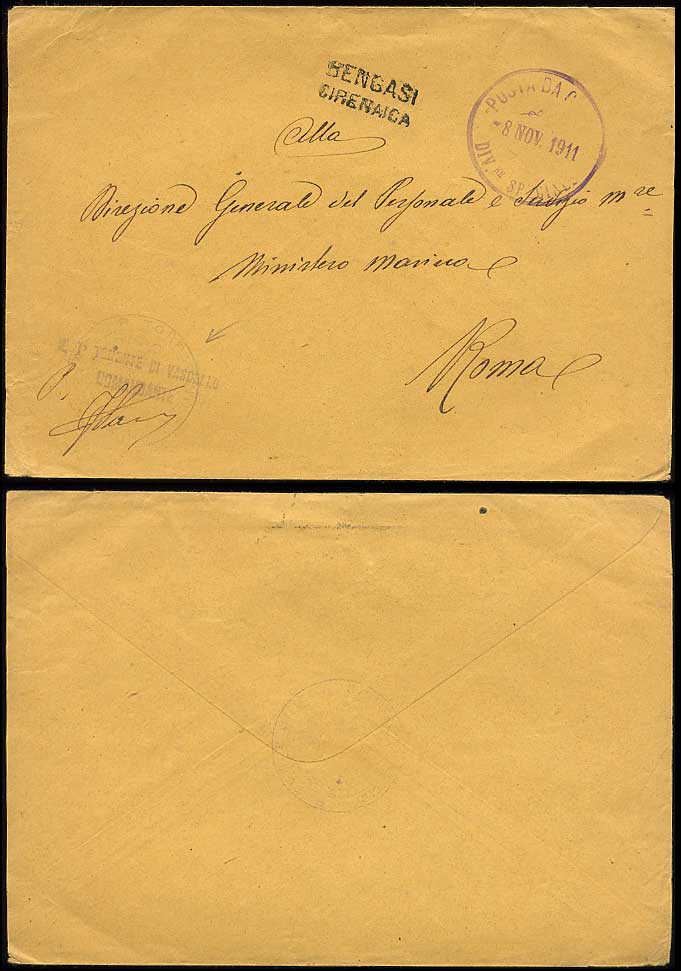 BENGASI
CIRENAICA
POSTA DA C
-8 NOV. 1911
DIV.NE SPECIALE
Alla
Direzione Generale del Personale e Servizio Mre
Ministero Marina
Roma
TENENTE DI VASCELLO
COMANDANTE